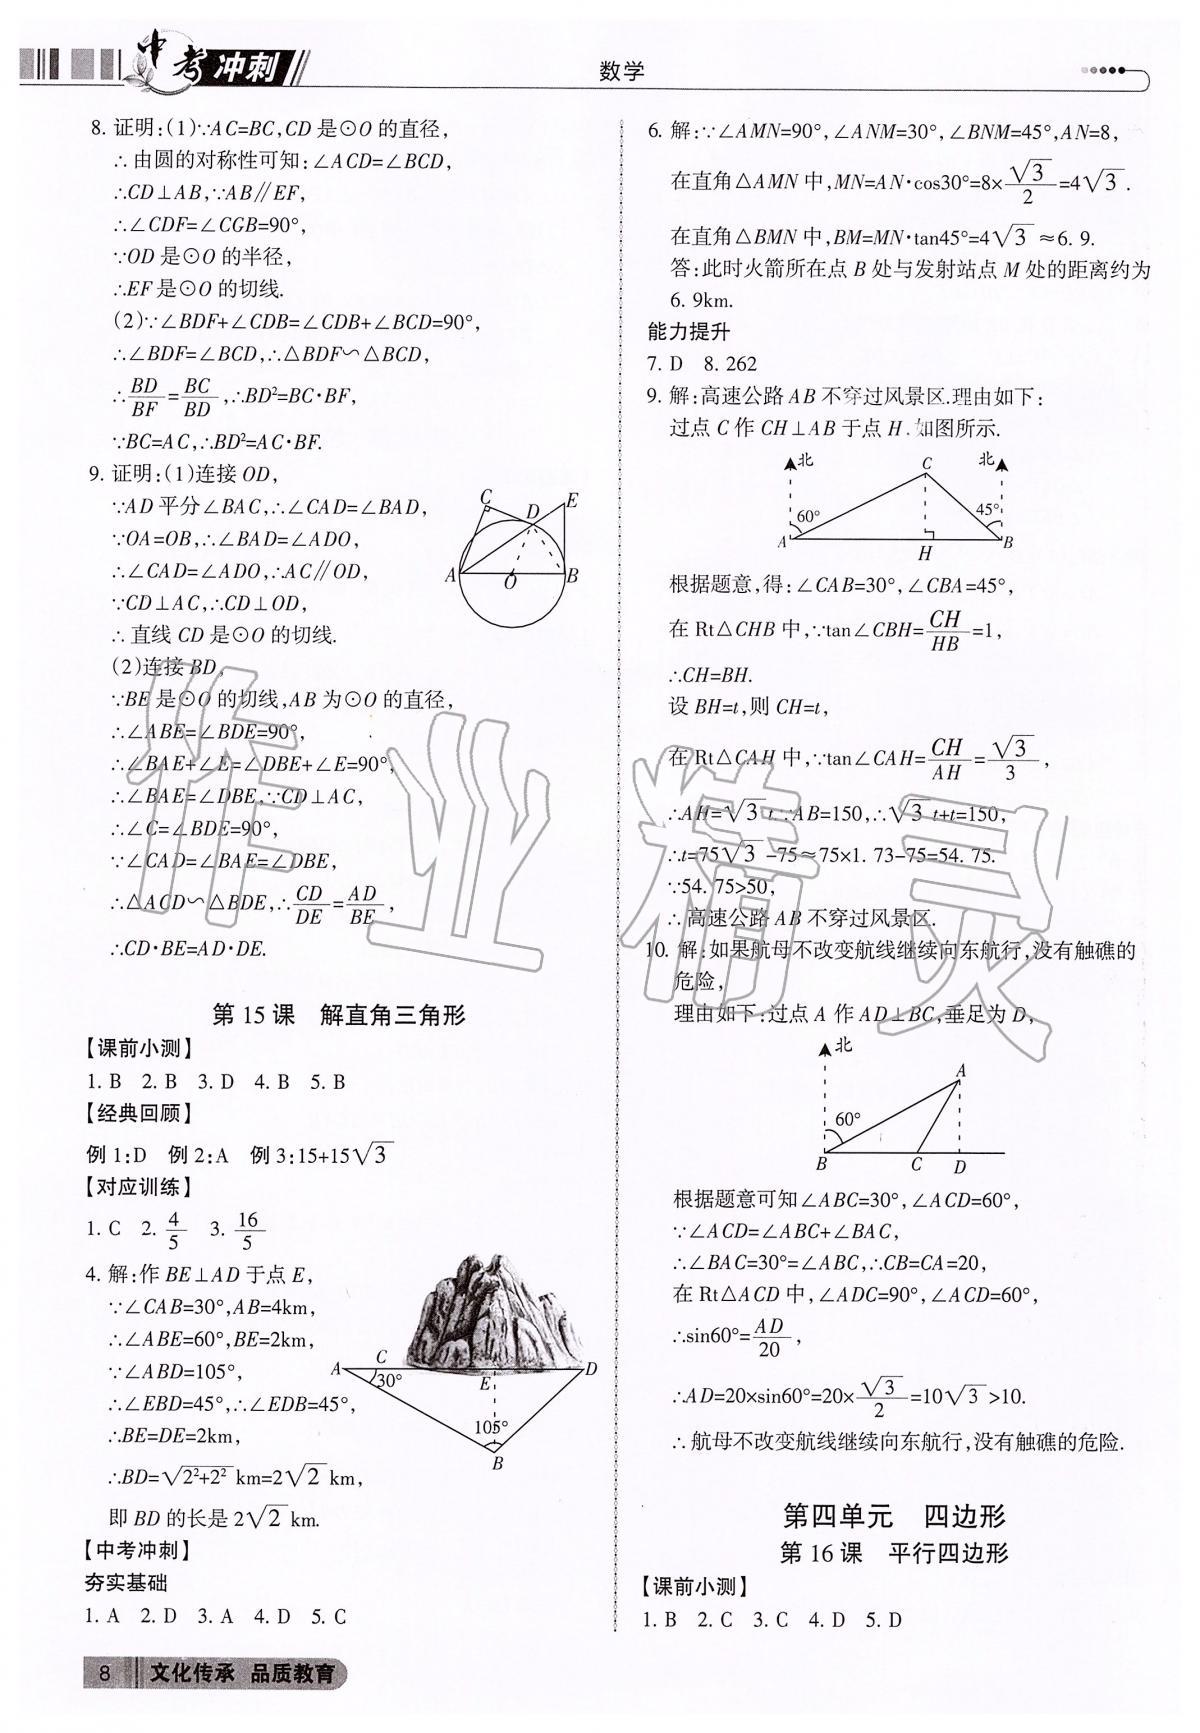 中考冲刺
数学
8. 证明:(1)∵AC=BC,CD 是⊙O 的直径,
∴由圆的对称性可知:∠ACD=∠BCD,
∴CD⊥AB,∵AB∥EF,
∴∠CDF=∠CGB=90°,
∵OD 是⊙O 的半径,
∴EF 是⊙O 的切线.
(2)∵∠BDF+∠CDB=∠CDB+∠BCD=90°,
∴∠BDF=∠BCD,∴△BDF∽△BCD,
∴BD/BF=BC/BD,∴BD²=BC·BF,
∵BC=AC,∴BD²=AC·BF.
9. 证明:(1)连接 OD,
∵AD 平分∠BAC,∴∠CAD=∠BAD,
∵OA=OB,∴∠BAD=∠ADO,
∴∠CAD=∠ADO,∴AC∥OD,
∵CD⊥AC,∴CD⊥OD,
∴直线 CD 是⊙O 的切线.
C D E A O B
(2)连接 BD,
∵BE 是⊙O 的切线,AB 为⊙O 的直径,
∴∠ABE=∠BDE=90°,
∴∠BAE+∠E=∠DBE+∠E=90°,
∴∠BAE=∠DBE,∵CD⊥AC,
∴∠C=∠BDE=90°,
∵∠CAD=∠BAE=∠DBE,
∴△ACD∽△BDE,∴CD/DE=AD/BE,
∴CD·BE=AD·DE.
第 15 课 解直角三角形
【课前小测】
1. B 2. B 3. D 4. B 5. B
【经典回顾】
例 1:D 例 2:A 例 3:15+15√3
【对应训练】
1. C 2. 4/5 3. 16/5
4. 解:作 BE⊥AD 于点 E,
∵∠CAB=30°,AB=4km,
∴∠ABE=60°,BE=2km,
∵∠ABD=105°,
∴∠EBD=45°,∴∠EDB=45°,
∴BE=DE=2km,
∴BD=√2²+2² km=2√2 km,
即 BD 的长是 2√2 km.
A C 30° E D 105° B
【中考冲刺】
夯实基础
1. A 2. D 3. A 4. D 5. C
6. 解:∵∠AMN=90°,∠ANM=30°,∠BNM=45°,AN=8,
在直角△AMN 中,MN=AN·cos30°=8×√3/2=4√3.
在直角△BMN 中,BM=MN·tan45°=4√3≈6. 9.
答:此时火箭所在点 B 处与发射站点 M 处的距离约为
6. 9km.
能力提升
7. D 8. 262
9. 解:高速公路 AB 不穿过风景区.理由如下:
过点 C 作 CH⊥AB 于点 H.如图所示.
北 C 北
60° 45°
A H B
根据题意,得:∠CAB=30°,∠CBA=45°,
在 Rt△CHB 中,∵tan∠CBH=CH/HB=1,
∴CH=BH.
设 BH=t,则 CH=t,
在 Rt△CAH 中,∵tan∠CAH=CH/AH=√3/3,
∴AH=√3 t.∵AB=150,∴√3 t+t=150,
∴t=75√3-75≈75×1. 73-75=54. 75.
∵54. 75>50,
∴高速公路 AB 不穿过风景区.
10. 解:如果航母不改变航线继续向东航行,没有触礁的
危险,
理由如下:过点 A 作 AD⊥BC,垂足为 D,
北
A
60°
B C D
根据题意可知∠ABC=30°,∠ACD=60°,
∵∠ACD=∠ABC+∠BAC,
∴∠BAC=30°=∠ABC,∴CB=CA=20,
在 Rt△ACD 中,∠ADC=90°,∠ACD=60°,
∴sin60°=AD/20,
∴AD=20×sin60°=20×√3/2=10√3>10.
∴航母不改变航线继续向东航行,没有触礁的危险.
第四单元 四边形
第 16 课 平行四边形
【课前小测】
1. B 2. C 3. C 4. D 5. D
8 文化传承 品质教育
作业精灵